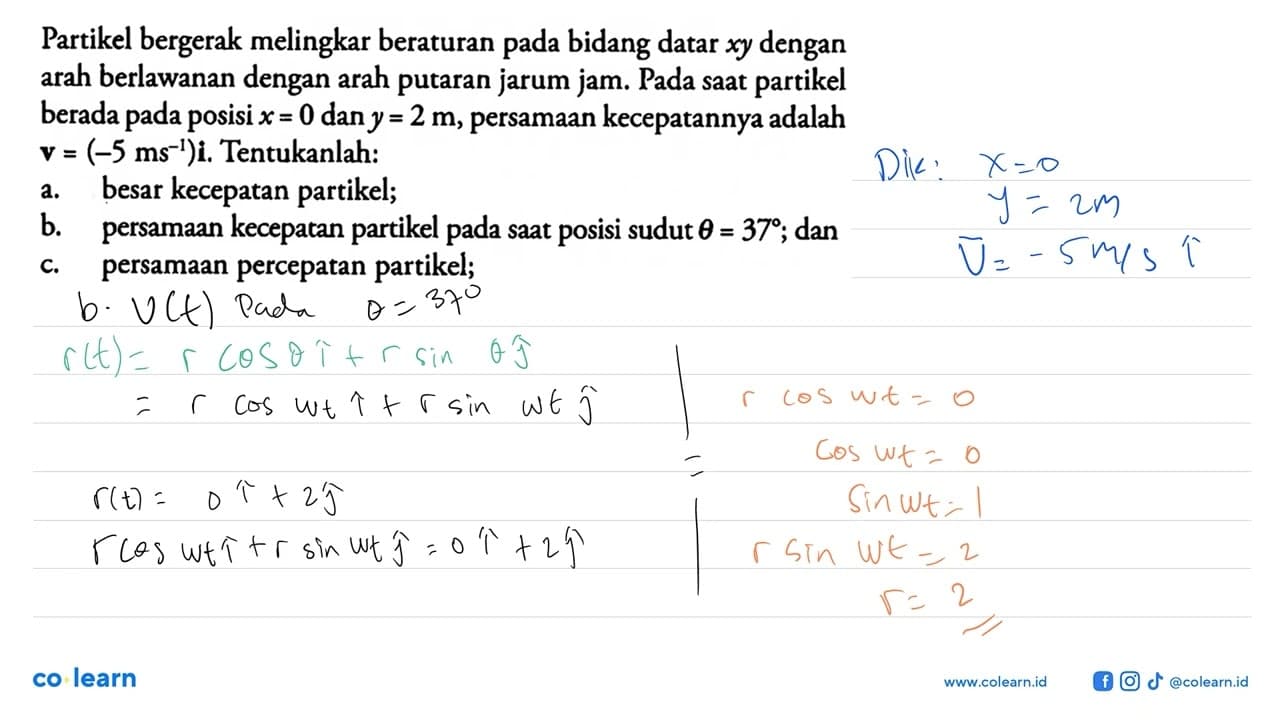 Partikel bergerak melingkar beraturan pada bidang datar xy dengan
arah berlawanan dengan arah putaran jarum jam. Pada saat partikel
berada pada posisi x = 0 dan y = 2 m, persamaan kecepatannya adalah
v = (–5 ms⁻¹)i. Tentukanlah:
a. besar kecepatan partikel;
b. persamaan kecepatan partikel pada saat posisi sudut θ = 37°; dan
c. persamaan percepatan partikel;
Dik: x=0
y = 2m
v̄ = -5 m/s î
b. v(t) Pada θ = 37°
r(t) = r cos θ î + r sin θ ĵ
= r cos wt î + r sin wt ĵ
r(t) = 0 î + 2 ĵ
r cos wt î + r sin wt ĵ = 0 î + 2 ĵ
=
r cos wt = 0
cos wt = 0
sin wt = 1
r sin wt = 2
r = 2
co learn
www.colearn.id
@colearn.id